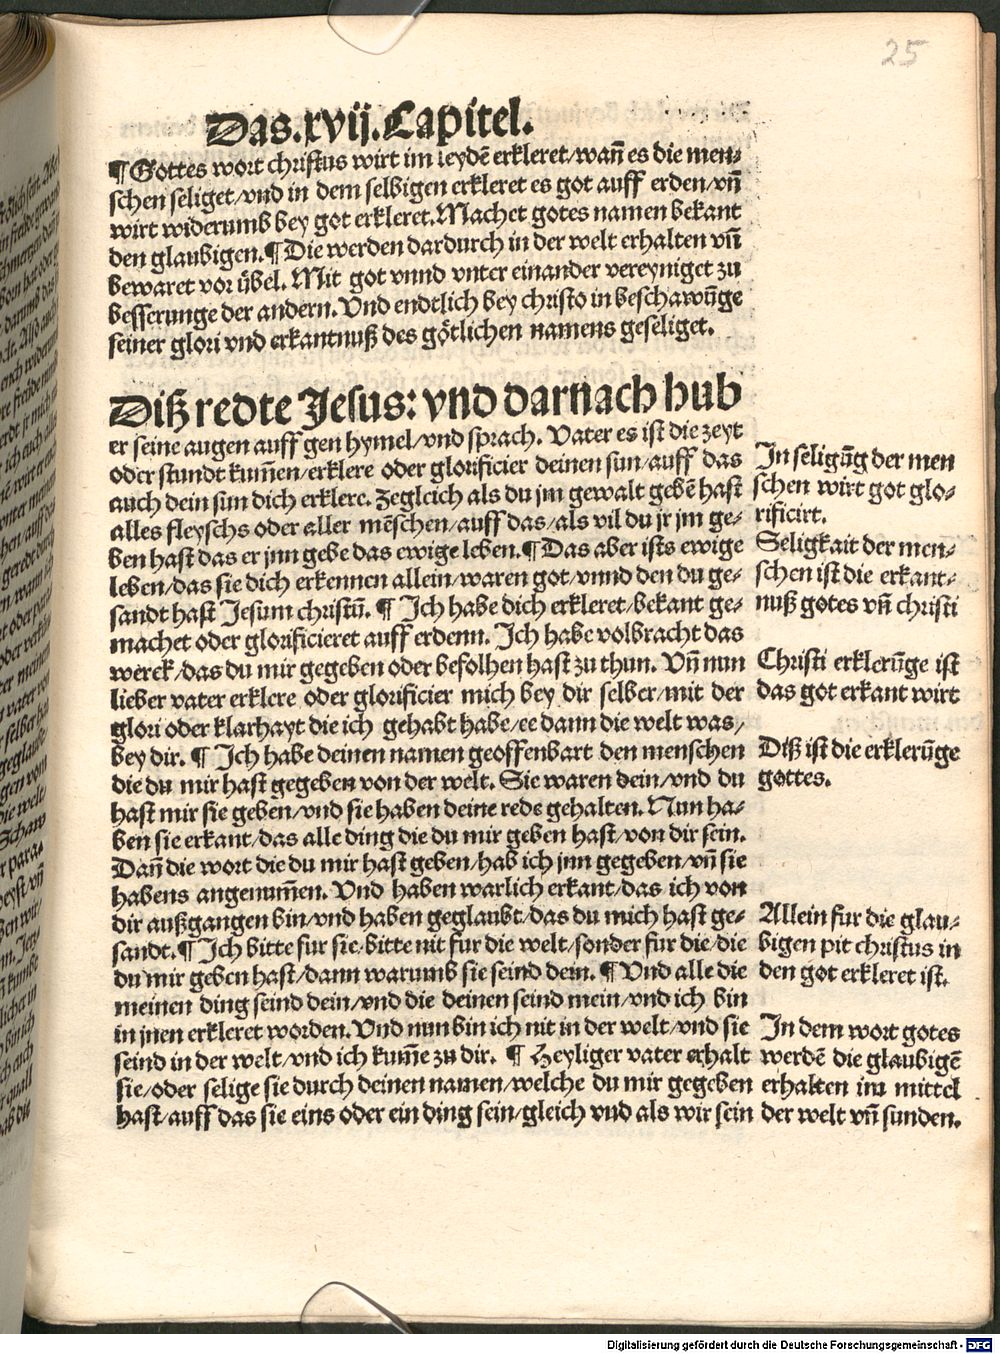 25
Das.xvij.Capitel.
¶Gottes wort christus wirt im leydē erkleret/wañ es die men⸗
schen seliget/vnd in dem selbigen erkleret es got auff erden/vñ
wirt widerumb bey got erkleret.Machet gotes namen bekant
den glaubigen.¶Die werden dardurch in der welt erhalten vñ
bewaret vor übel. Mit got vnnd vnter einander vereyniget zu
besserunge der andern. Vnd endtlich bey christo in beschawūge
seiner glori vnd erkantnuß des götlichen namens geseliget.
Diß redte Jesus: vnd darnach hub
er seine augen auff gen hymel/vnd sprach. Vater es ist die zeyt
oder stundt kum̄en/erklere oder glorificier deinen sun/auff das
auch dein sun dich erklere. Zegleich als du jm gewalt gebē hast
alles fleyschs oder aller mēschen/auff das/als vil du jr jm ge⸗
ben hast das er jnn gebe das ewige leben.¶Das aber ists ewige
leben/das sie dich erkennen allein/waren got/vnnd den du ge⸗
sandt hast Jesum christū. ¶ Ich habe dich erkleret/bekant ge⸗
machet oder glorificieret auff erdenn. Ich habe volbracht das
werck/das du mir gegeben oder befolhen hast zu thun. Vñ nun
lieber vater erklere oder glorificier mich bey dir selber/mit der
glori oder klarhayt die ich gehabt habe/ee dann die welt was/
bey dir. ¶ Ich habe deinen namen geoffenbart den menschen
die du mir hast gegeben von der welt. Sie waren dein/vnd du
hast mir sie geben/vnd sie haben deine rede gehalten. Nun ha⸗
ben sie erkant/das alle ding die du mir geben hast/von dir sein.
Dañ die wort die du mir hast geben/hab ich jnn gegeben/vñ sie
habens angenum̄en. Vnd haben warlich erkant/das ich von
dir außgangen bin/vnd haben geglaubt/das du mich hast ge⸗
sandt.¶ Ich bitte fur sie/bitte nit fur die welt/sonder fur die/die
du mir geben hast/dann warumb sie seind dein. ¶ Vnd alle die
meinen ding seind dein/vnd die deinen seind mein/vnd ich bin
in jnen erkleret worden. Vnd nun bin ich nit in der welt/vnd sie
seind in der welt/vnd ich kum̄e zu dir. ¶ Heyliger vater erhalt
sie/oder selige sie durch deinen namen/welche du mir gegeben
hast/auff das sie eins oder ein ding sein/gleich vnd als wir sein
In seligūg der men
schen wirt got glo⸗
rificirt.
Seligkait der men⸗
schen ist die erkant⸗
nuß gotes vñ christi
Christi erklerūge ist
das got erkant wirt
Diß ist die erklerūge
gottes.
Allein fur die glau⸗
bigen pit christus in
den got erkleret ist.
In dem wort gotes
werdē die glaubigē
erhalten im mittel
der welt vñ sunden.
Digitalisierung gefördert durch die Deutsche Forschungsgemeinschaft - DFG